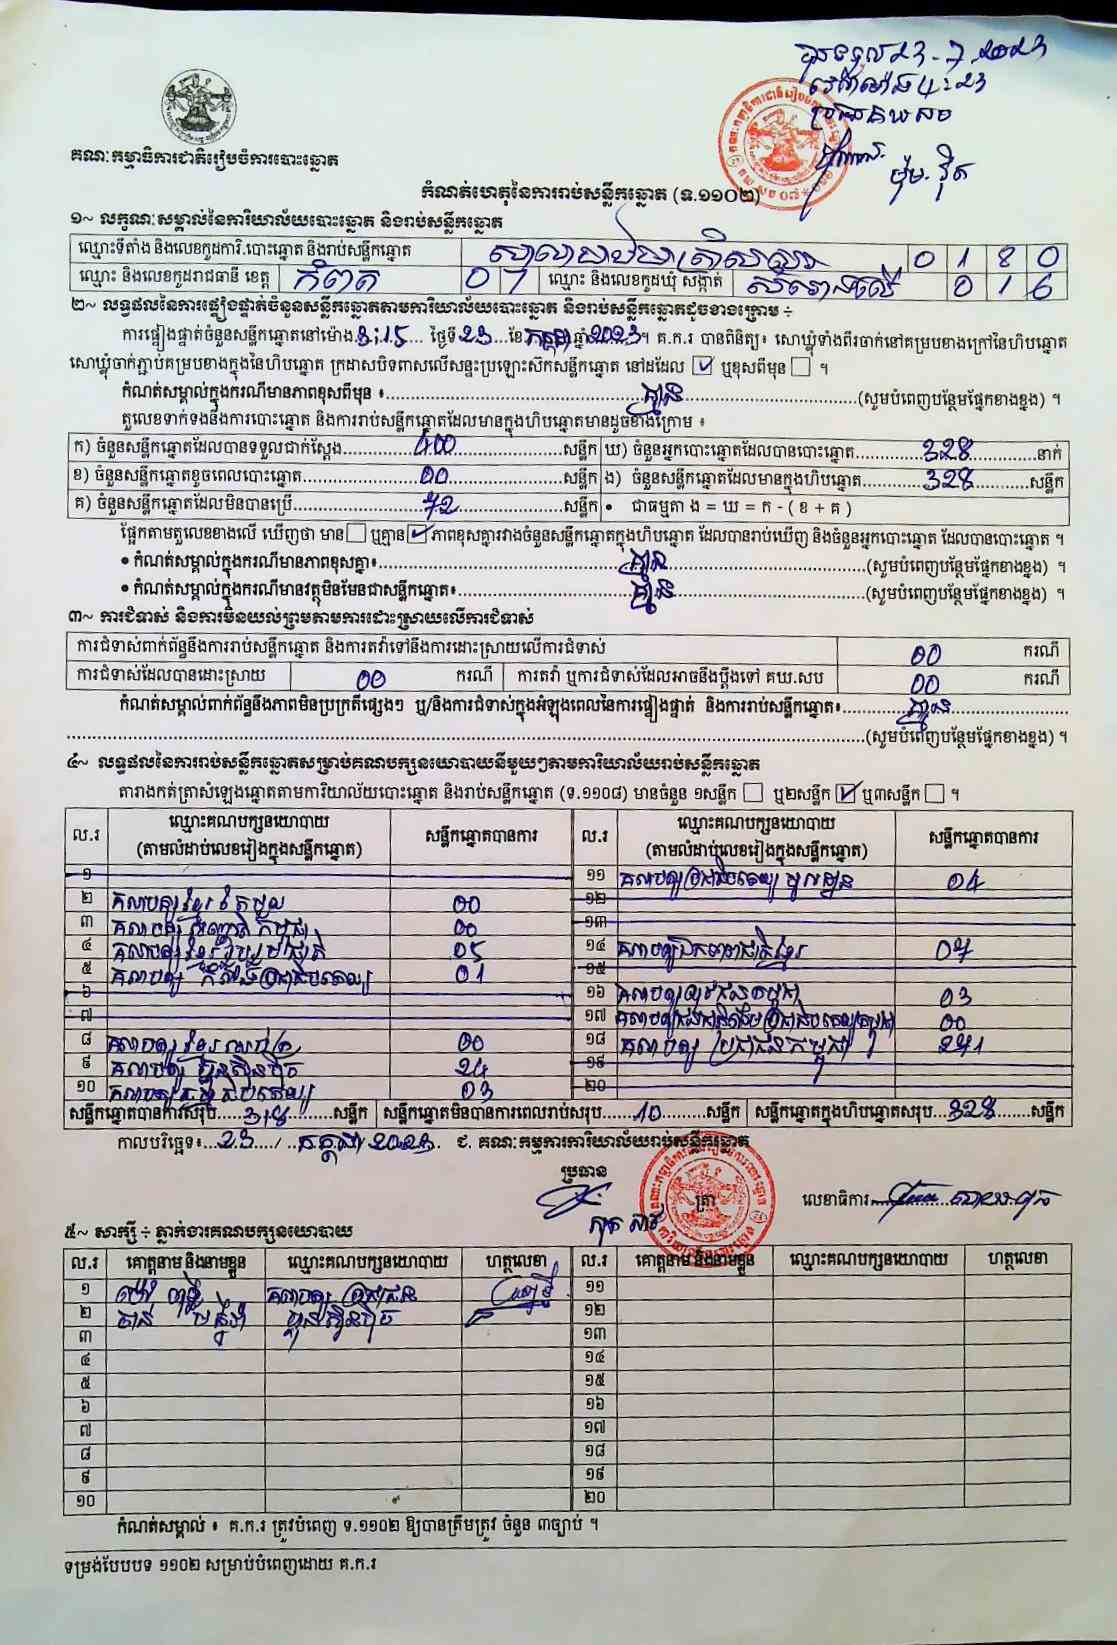 បានទទួល 23-7-2023
វេលាម៉ោង 4:23
គណៈកម្មាធិការជាតិរៀបចំការបោះឆ្នោត
កំណត់ហេតុនៃការរាប់សន្លឹកឆ្នោត (ទ.១១០២)
១~ លក្ខណៈសម្គាល់នៃការិយាល័យបោះឆ្នោត និងរាប់សន្លឹកឆ្នោត
ឈ្មោះទីតាំង និងលេខកូដការិ.បោះឆ្នោត និងរាប់សន្លឹកឆ្នោត 0 1 8 0
ឈ្មោះ និងលេខកូដរាជធានី ខេត្ត កំពត 0 7 ឈ្មោះ និងលេខកូដឃុំ សង្កាត់ សំរោងលើ 0 1 6
២~ លទ្ធផលនៃការផ្ទៀងផ្ទាត់ចំនួនសន្លឹកឆ្នោតតាមការិយាល័យបោះឆ្នោត និងរាប់សន្លឹកឆ្នោតដូចខាងក្រោម ÷
ការផ្ទៀងផ្ទាត់ចំនួនសន្លឹកឆ្នោតនៅម៉ោង 3:15 ថ្ងៃទី 23 ខែ កក្កដា ឆ្នាំ 2023 ។ គ.ក.រ បានពិនិត្យ៖ សោឃ្លុំទាំងពីរចាក់នៅគម្របខាងក្រៅនៃហិបឆ្នោត
សោឃ្លុំចាក់ភ្ជាប់គម្របខាងក្នុងនៃហិបឆ្នោត ក្រដាសបិទពាសលើសន្ទះប្រឡោះស៊កសន្លឹកឆ្នោត នៅដដែល ☑ ឬខុសពីមុន ☐ ។
កំណត់សម្គាល់ក្នុងករណីមានភាពខុសពីមុន ៖ គ្មាន (សូមបំពេញបន្ថែមផ្នែកខាងខ្នង) ។
តួលេខទាក់ទងនឹងការបោះឆ្នោត និងការរាប់សន្លឹកឆ្នោតដែលមានក្នុងហិបឆ្នោតមានដូចខាងក្រោម ៖
ក) ចំនួនសន្លឹកឆ្នោតដែលបានទទួលជាក់ស្តែង 400 សន្លឹក ឃ) ចំនួនអ្នកបោះឆ្នោតដែលបានបោះឆ្នោត 328 នាក់
ខ) ចំនួនសន្លឹកឆ្នោតខូចពេលបោះឆ្នោត 00 សន្លឹក ង) ចំនួនសន្លឹកឆ្នោតដែលមានក្នុងហិបឆ្នោត 328 សន្លឹក
គ) ចំនួនសន្លឹកឆ្នោតដែលមិនបានប្រើ 72 សន្លឹក • ជាធម្មតា ង = ឃ = ក - ( ខ + គ )
ផ្អែកតាមតួលេខខាងលើ ឃើញថា មាន ☐ ឬគ្មាន ☑ ភាពខុសគ្នារវាងចំនួនសន្លឹកឆ្នោតក្នុងហិបឆ្នោត ដែលបានរាប់ឃើញ និងចំនួនអ្នកបោះឆ្នោត ដែលបានបោះឆ្នោត ។
• កំណត់សម្គាល់ក្នុងករណីមានភាពខុសគ្នា៖ គ្មាន (សូមបំពេញបន្ថែមផ្នែកខាងខ្នង) ។
• កំណត់សម្គាល់ក្នុងករណីមានវត្ថុមិនមែនជាសន្លឹកឆ្នោត៖ គ្មាន (សូមបំពេញបន្ថែមផ្នែកខាងខ្នង) ។
៣~ ការជំទាស់ និងការមិនយល់ព្រមតាមការដោះស្រាយលើការជំទាស់
ការជំទាស់ពាក់ព័ន្ធនឹងការរាប់សន្លឹកឆ្នោត និងការតវ៉ាទៅនឹងការដោះស្រាយលើការជំទាស់ 00 ករណី
ការជំទាស់ដែលបានដោះស្រាយ 00 ករណី ការតវ៉ា ឬការជំទាស់ដែលអាចនឹងប្តឹងទៅ គឃ.សប 00 ករណី
កំណត់សម្គាល់ពាក់ព័ន្ធនឹងភាពមិនប្រក្រតីផ្សេងៗ ឬ/និងការជំទាស់ក្នុងអំឡុងពេលនៃការផ្ទៀងផ្ទាត់ និងការរាប់សន្លឹកឆ្នោត៖ គ្មាន
(សូមបំពេញបន្ថែមផ្នែកខាងខ្នង) ។
៤~ លទ្ធផលនៃការរាប់សន្លឹកឆ្នោតសម្រាប់គណបក្សនយោបាយនីមួយៗតាមការិយាល័យរាប់សន្លឹកឆ្នោត
តារាងកត់ត្រាសំឡេងឆ្នោតតាមការិយាល័យបោះឆ្នោត និងរាប់សន្លឹកឆ្នោត (ទ.១១០៨) មានចំនួន ១សន្លឹក ☐ ឬ២សន្លឹក ☑ ឬ៣សន្លឹក ☐ ។
ល.រ ឈ្មោះគណបក្សនយោបាយ (តាមលំដាប់លេខរៀងក្នុងសន្លឹកឆ្នោត) សន្លឹកឆ្នោតបានការ ល.រ ឈ្មោះគណបក្សនយោបាយ (តាមលំដាប់លេខរៀងក្នុងសន្លឹកឆ្នោត) សន្លឹកឆ្នោតបានការ
១ ១១ គណបក្សប្រជាធិបតេយ្យមូលដ្ឋាន 04
២ គណបក្សខ្មែរតែមួយ 00 ១២
៣ 00 ១៣
៤ គណបក្សខ្មែររួបរួមជាតិ 05 ១៤ 07
៥ គណបក្ស កំលាំងប្រជាធិបតេយ្យ 01 ១៥
៦ ១៦ គណបក្សយុវជនកម្ពុជា 03
៧ ១៧ 00
៨ គណបក្សខ្មែរ 00 ១៨ គណបក្ស ប្រជាជនកម្ពុជា 271
៩ គណបក្ស ហ៊្វុនស៊ិនប៉ិច 24 ១៩
១០ 03 ២០
សន្លឹកឆ្នោតបានការសរុប 318 សន្លឹក សន្លឹកឆ្នោតមិនបានការពេលរាប់សរុប 10 សន្លឹក សន្លឹកឆ្នោតក្នុងហិបឆ្នោតសរុប 328 សន្លឹក
កាលបរិច្ឆេទ៖ 23 / កក្កដា / 2023 ជ. គណៈកម្មការការិយាល័យរាប់សន្លឹកឆ្នោត
ប្រធាន
ត្រា
លេខាធិការ
៥~ សាក្សី ÷ ភ្នាក់ងារគណបក្សនយោបាយ
ល.រ គោត្តនាម និងនាមខ្លួន ឈ្មោះគណបក្សនយោបាយ ហត្ថលេខា ល.រ គោត្តនាម និងនាមខ្លួន ឈ្មោះគណបក្សនយោបាយ ហត្ថលេខា
១ គណបក្ស ប្រជាជន ១១
២ ហ៊្វុនស៊ិនប៉ិច ១២
៣ ១៣
៤ ១៤
៥ ១៥
៦ ១៦
៧ ១៧
៨ ១៨
៩ ១៩
១០ ២០
កំណត់សម្គាល់ ៖ គ.ក.រ ត្រូវបំពេញ ទ.១១០២ ឱ្យបានត្រឹមត្រូវ ចំនួន ៣ច្បាប់ ។
ទម្រង់បែបបទ ១១០២ សម្រាប់បំពេញដោយ គ.ក.រ